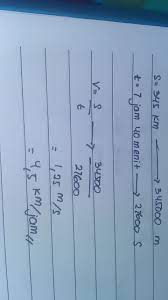 S = 345 km → 345000 m
t = 7 jam 40 menit → 27600 s
V = S/t → 34500/27600
= 1,25 m/s
= 4,5 km/jam //